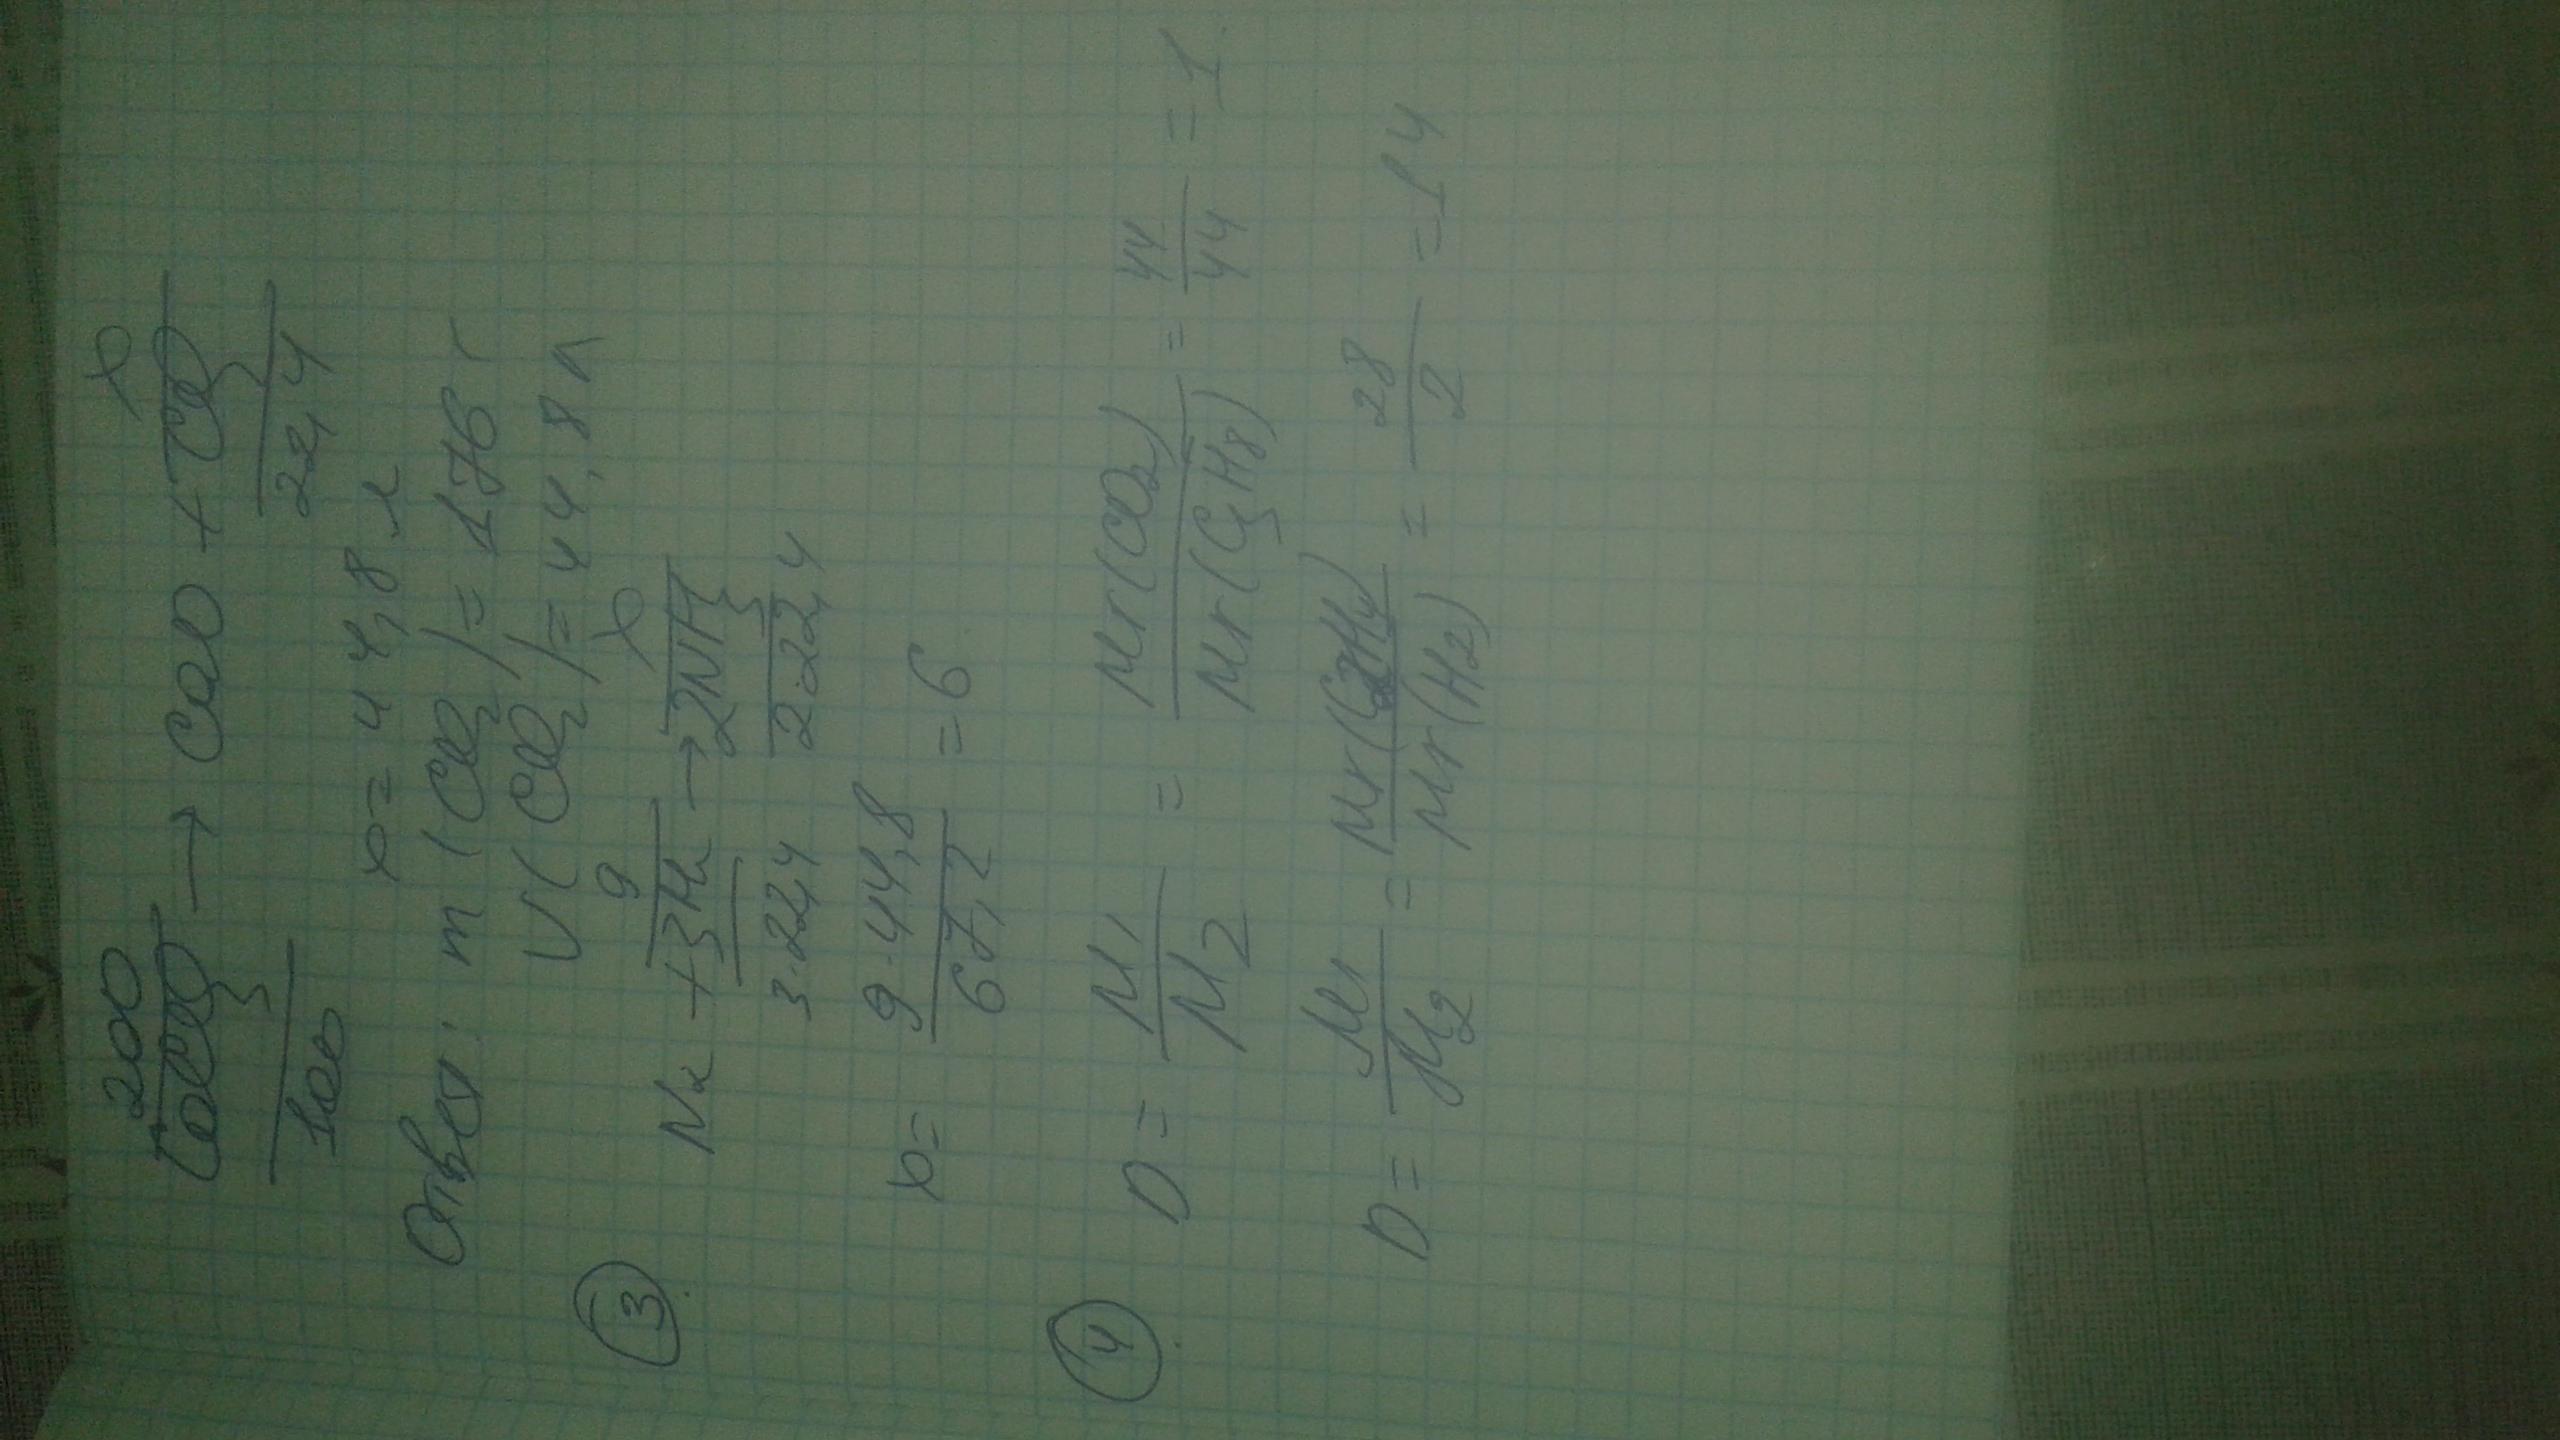 200 x
CaCO3 → CaO + CO2
100 22,4
x = 44,8 л
Ответ: m (CO2) = 176 г
V (CO2) = 44,8 л
③ 9 x
N2 + 3H2 → 2NH3
3·22,4 2·22,4
x = 9·44,8 / 67,2 = 6
④ D = M1 / M2 = Mr(CO2) / Mr(C3H8) = 44 / 44 = 1
D = M1 / M2 = Mr(C2H4) / Mr(H2) = 28 / 2 = 14